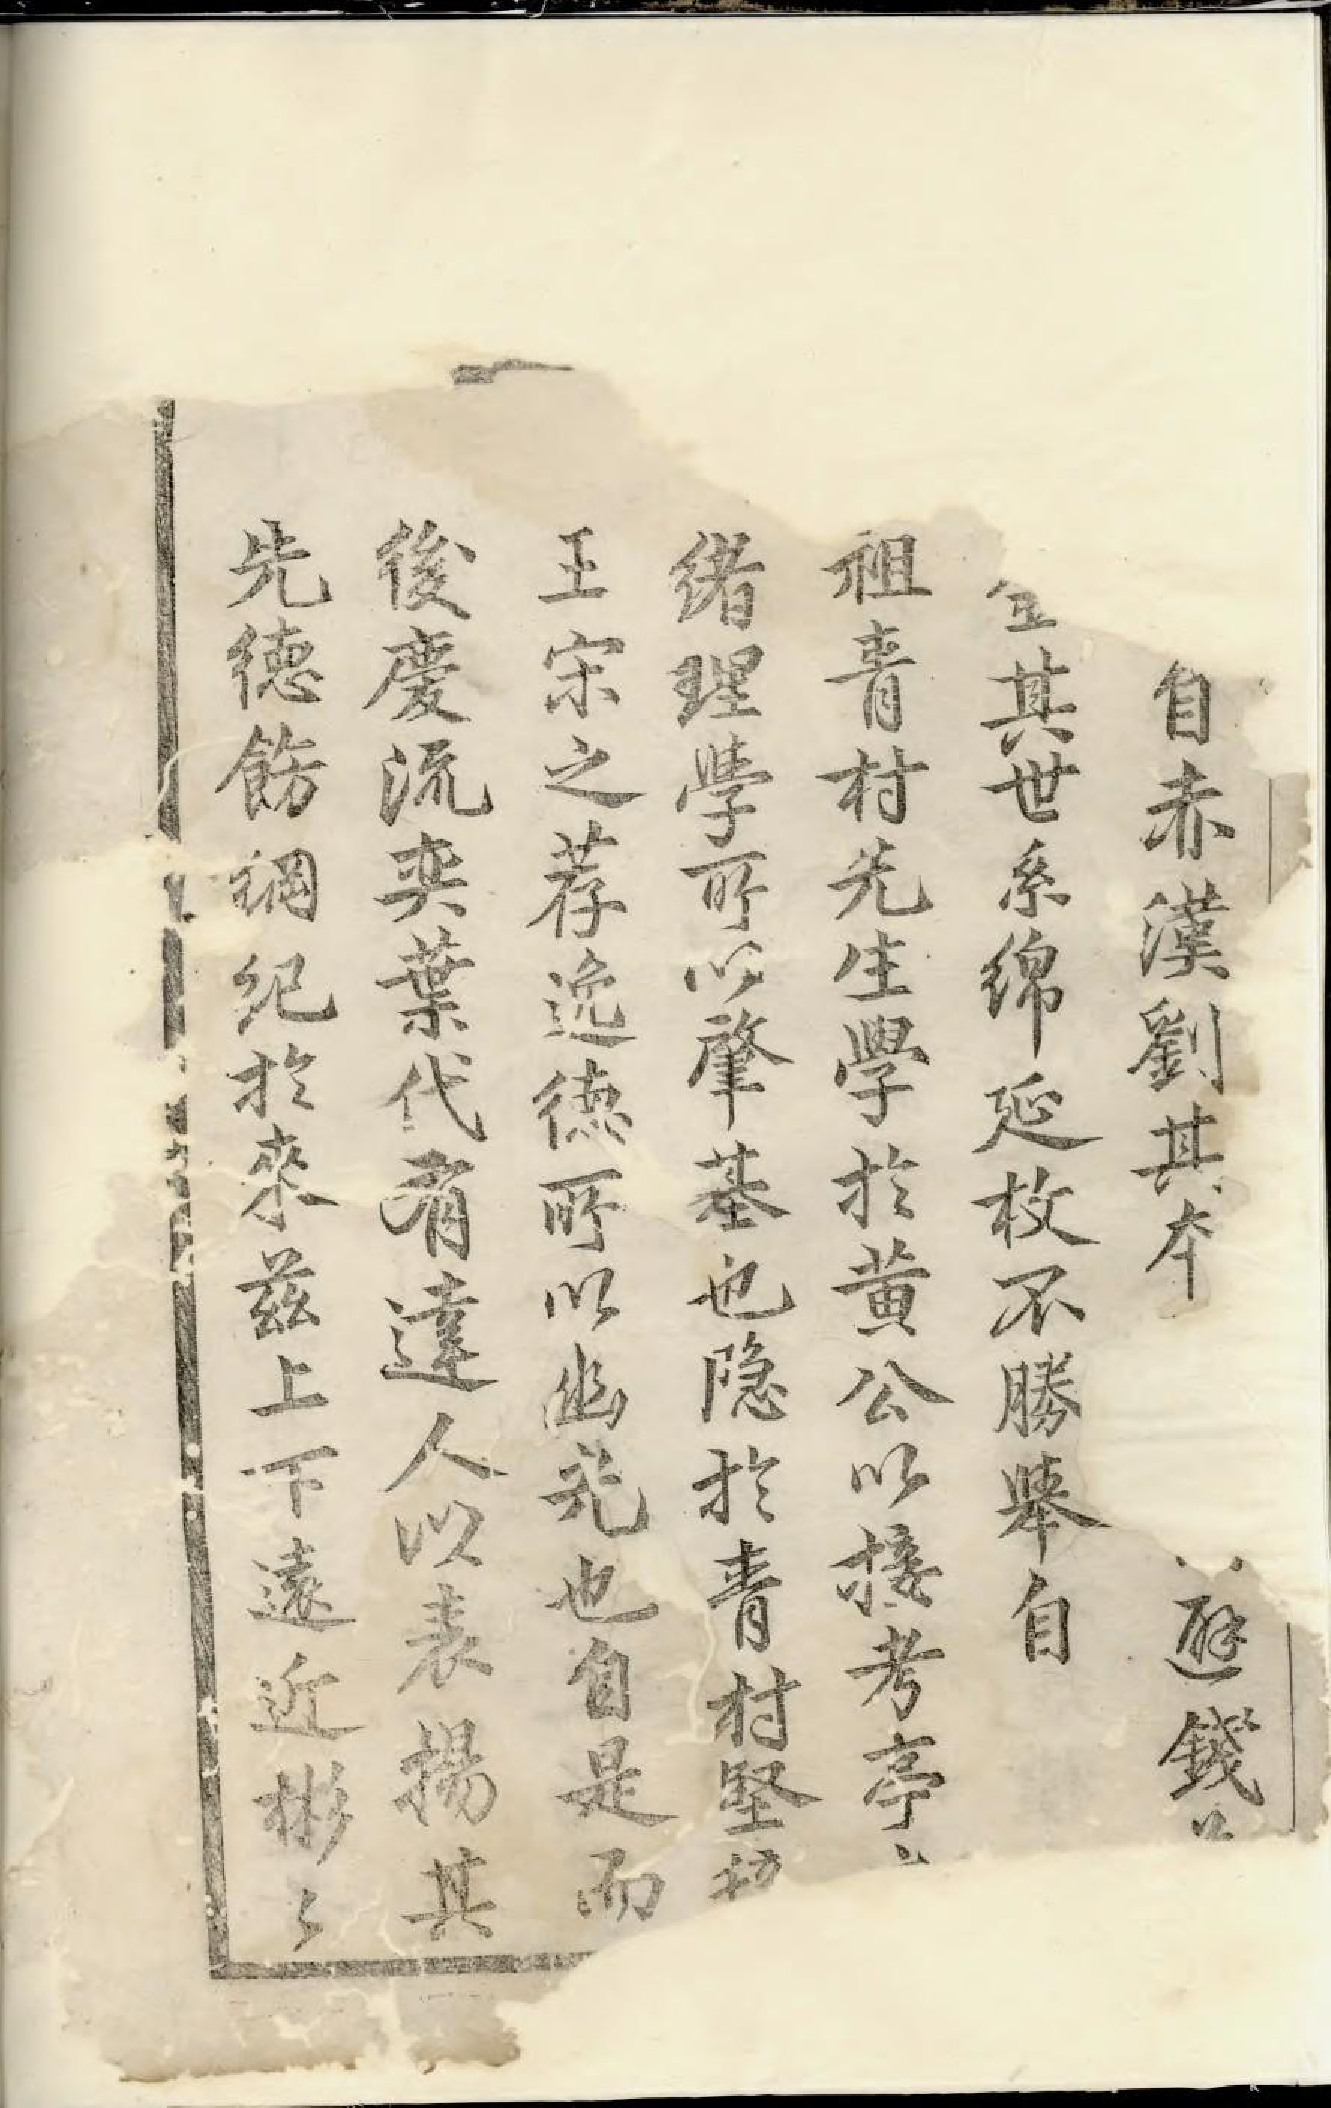 自赤漢劉其本避錢
金其世系綿延枚不勝舉自
祖青村先生學於黃公以接考亭
緒理學所以肇基也隐於青村堅
王宗之荐逸德所以幽光也自是而
後慶流奕葉代有達人以表揚其
先德飭綱紀於來兹上下遠近彬〻